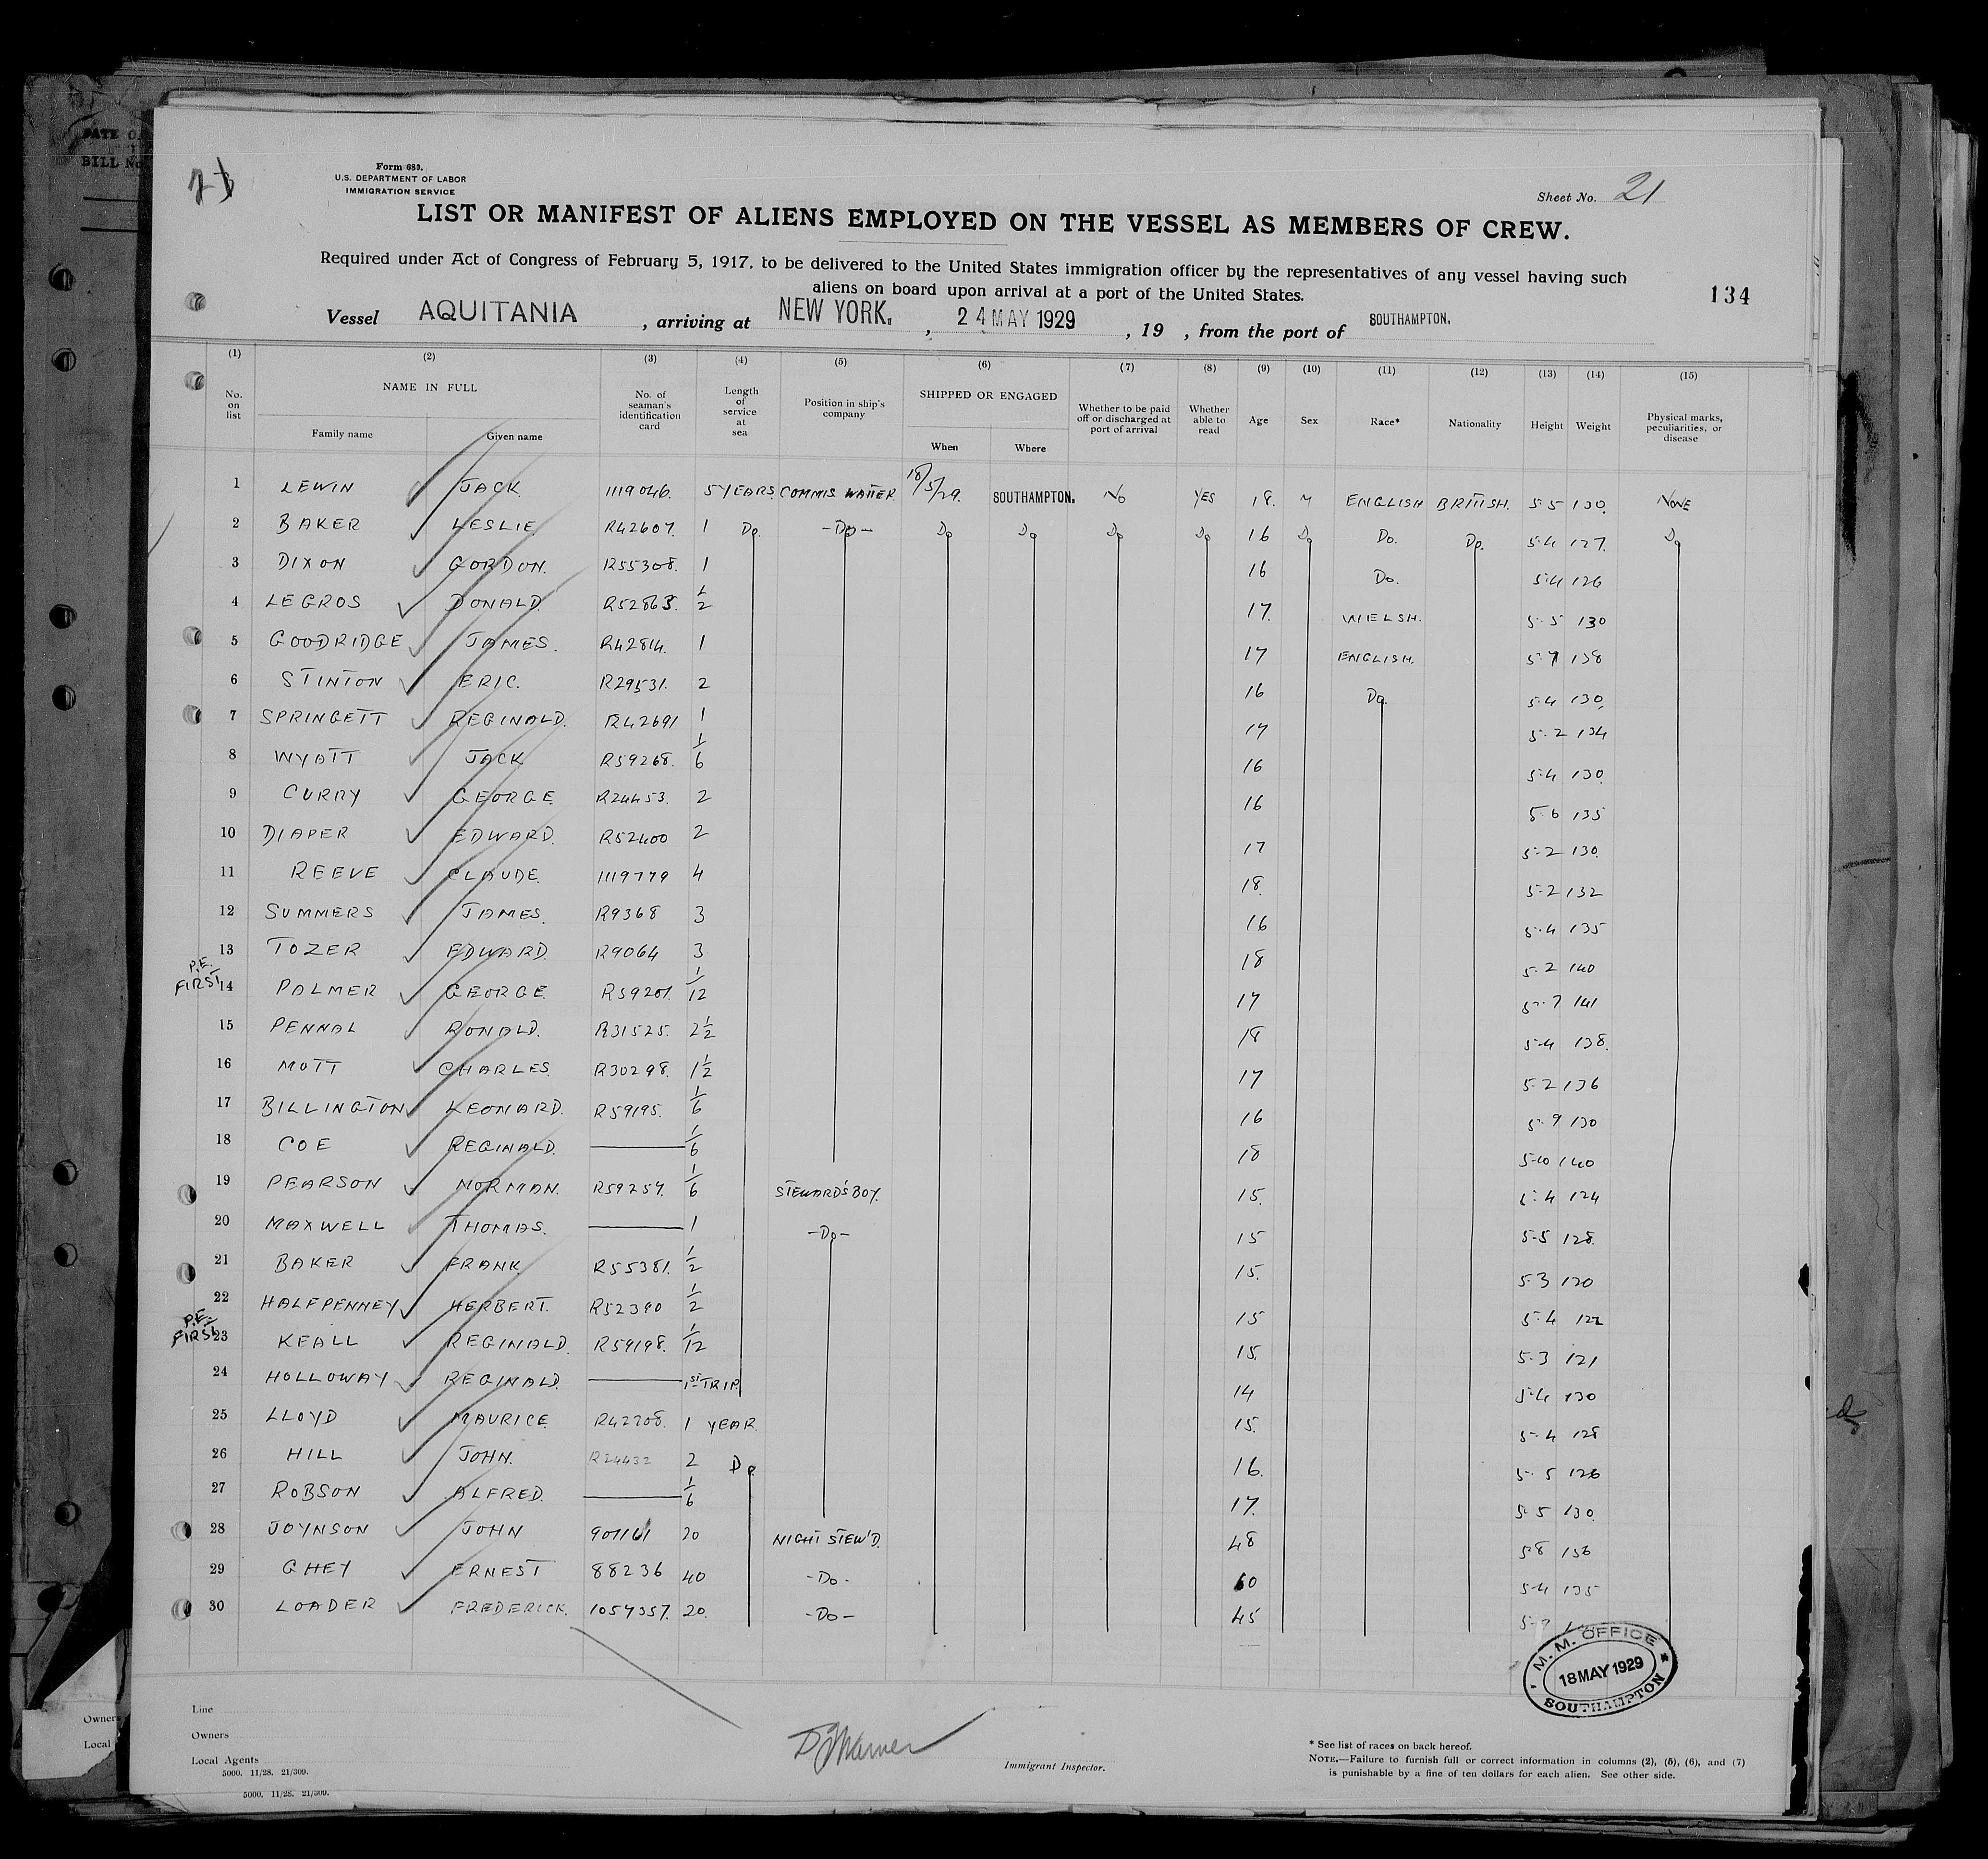 DATE O
BILL No
Form 680.
U.S. DEPARTMENT OF LABOR
IMMIGRATION SERVICE
Sheet No. 21
LIST OR MANIFEST OF ALIENS EMPLOYED ON THE VESSEL AS MEMBERS OF CREW.
Required under Act of Congress of February 5, 1917, to be delivered to the United States immigration officer by the representatives of any vessel having such
aliens on board upon arrival at a port of the United States.
134
Vessel AQUITANIA, arriving at NEW YORK., 24 MAY 1929, 19 , from the port of SOUTHAMPTON.
(1) (2) (3) (4) (5) (6) (7) (8) (9) (10) (11) (12) (13) (14) (15)
No. on list NAME IN FULL Family name Given name No. of seaman's identification card Length of service at sea Position in ship's company SHIPPED OR ENGAGED When Where Whether to be paid off or discharged at port of arrival Whether able to read Age Sex Race* Nationality Height Weight Physical marks, peculiarities, or disease
1 LEWIN JACK 1119046. 5 YEARS. COMMIS WAITER 18/5/29. SOUTHAMPTON. NO YES 18. M ENGLISH BRITISH. 5-5 130. NONE
2 BAKER LESLIE R42607. 1 Do. -Do- Do Do Do Do 16 Do Do. Do. 5-4 127. Do
3 DIXON GORDON. R55308. 1 16 Do. 5-4 126
4 LEGROS DONALD R52863. 1/2 17. WELSH. 5-5 130
5 GOODRIDGE JAMES. R42814. 1 17 ENGLISH. 5-7 138
6 STINTON ERIC. R29531. 2 16 Do. 5-4 130.
7 SPRINGETT REGINALD. R42691 1 17 5-2 134
8 WYATT JACK R59268. 1/6 16 5-4 130.
9 CURRY GEORGE R24453. 2 16 5-6 135
10 DIAPER EDWARD. R52400 2 17 5-2 130.
11 REEVE CLAUDE. 1119779 4 18. 5-2 132
12 SUMMERS JAMES. R9368 3 16 5-4 135
13 TOZER EDWARD. R9064 3 18 5-2 140
P.E. FIRST 14 PALMER GEORGE. R59201. 1/12 17 5-7 141
15 PENNAL RONALD. R31525. 2 1/2 18 5-4 138.
16 MOTT CHARLES. R30298. 1 1/2 17 5-2 136
17 BILLINGTON LEONARD. R59195. 1/6 16 5-9 130
18 COE REGINALD. 1/6 18 5-10 140
19 PEARSON NORMAN. R59257. 1/6 STEWARD'S BOY. 15. 5-4 124
20 MAXWELL THOMAS. 1 -Do- 15 5-5 128.
21 BAKER FRANK R55381. 1/2 15. 5-3 120
22 HALFPENNEY HERBERT. R52390 1/2 15 5-4 122
P.E. FIRST 23 KEALL REGINALD. R59198. 1/12 15. 5-3 121
24 HOLLOWAY REGINALD. 1ST TRIP 14 5-4 130
25 LLOYD MAURICE R42208. 1 YEAR. 15. 5-4 128
26 HILL JOHN. R24432 2 Do 16. 5-5 126
27 ROBSON ALFRED. 1/6 17. 5-5 130.
28 JOYNSON JOHN 907161 20 NIGHT STEW'D. 48 5-8 156
29 GHEY ERNEST 88236 40 -Do- 60 5-4 135
30 LOADER FREDERICK. 1057357. 20. -Do- 45
M.M. OFFICE
18 MAY 1929
SOUTHAMPTON
Line
Owners
Local Agents
5000. 11/28. 21/309.
Immigrant Inspector.
* See list of races on back hereof.
NOTE.—Failure to furnish full or correct information in columns (2), (5), (6), and (7)
is punishable by a fine of ten dollars for each alien. See other side.
Owners
Local
5000. 11/28. 21/309.